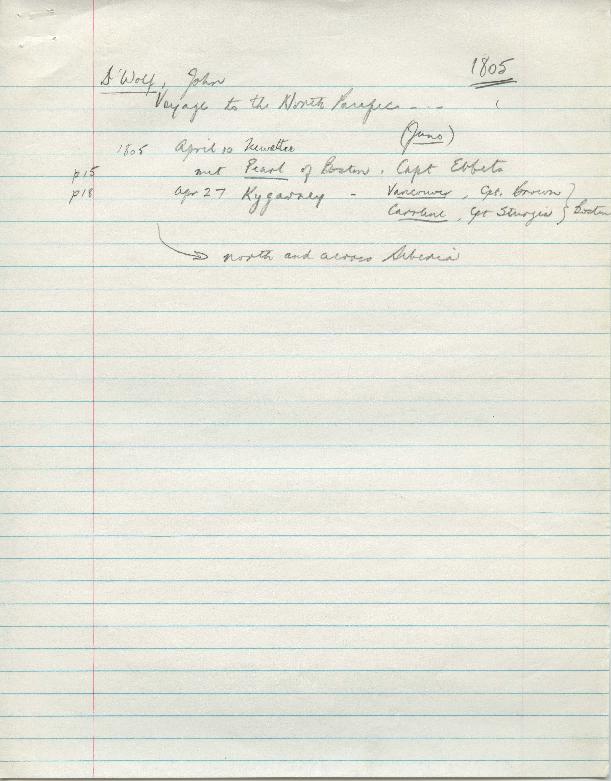 1805
D'Wolf, John
Voyage to the North Pacific ---
(Juno)
1805 April 10 Newettee
p15 met Pearl of Boston, Capt Ebbets
p18 Apr 27 Kygarney - Vancouver, Cpt. Brown } Boston
Caroline, Cpt Sturgis
north and across Siberia